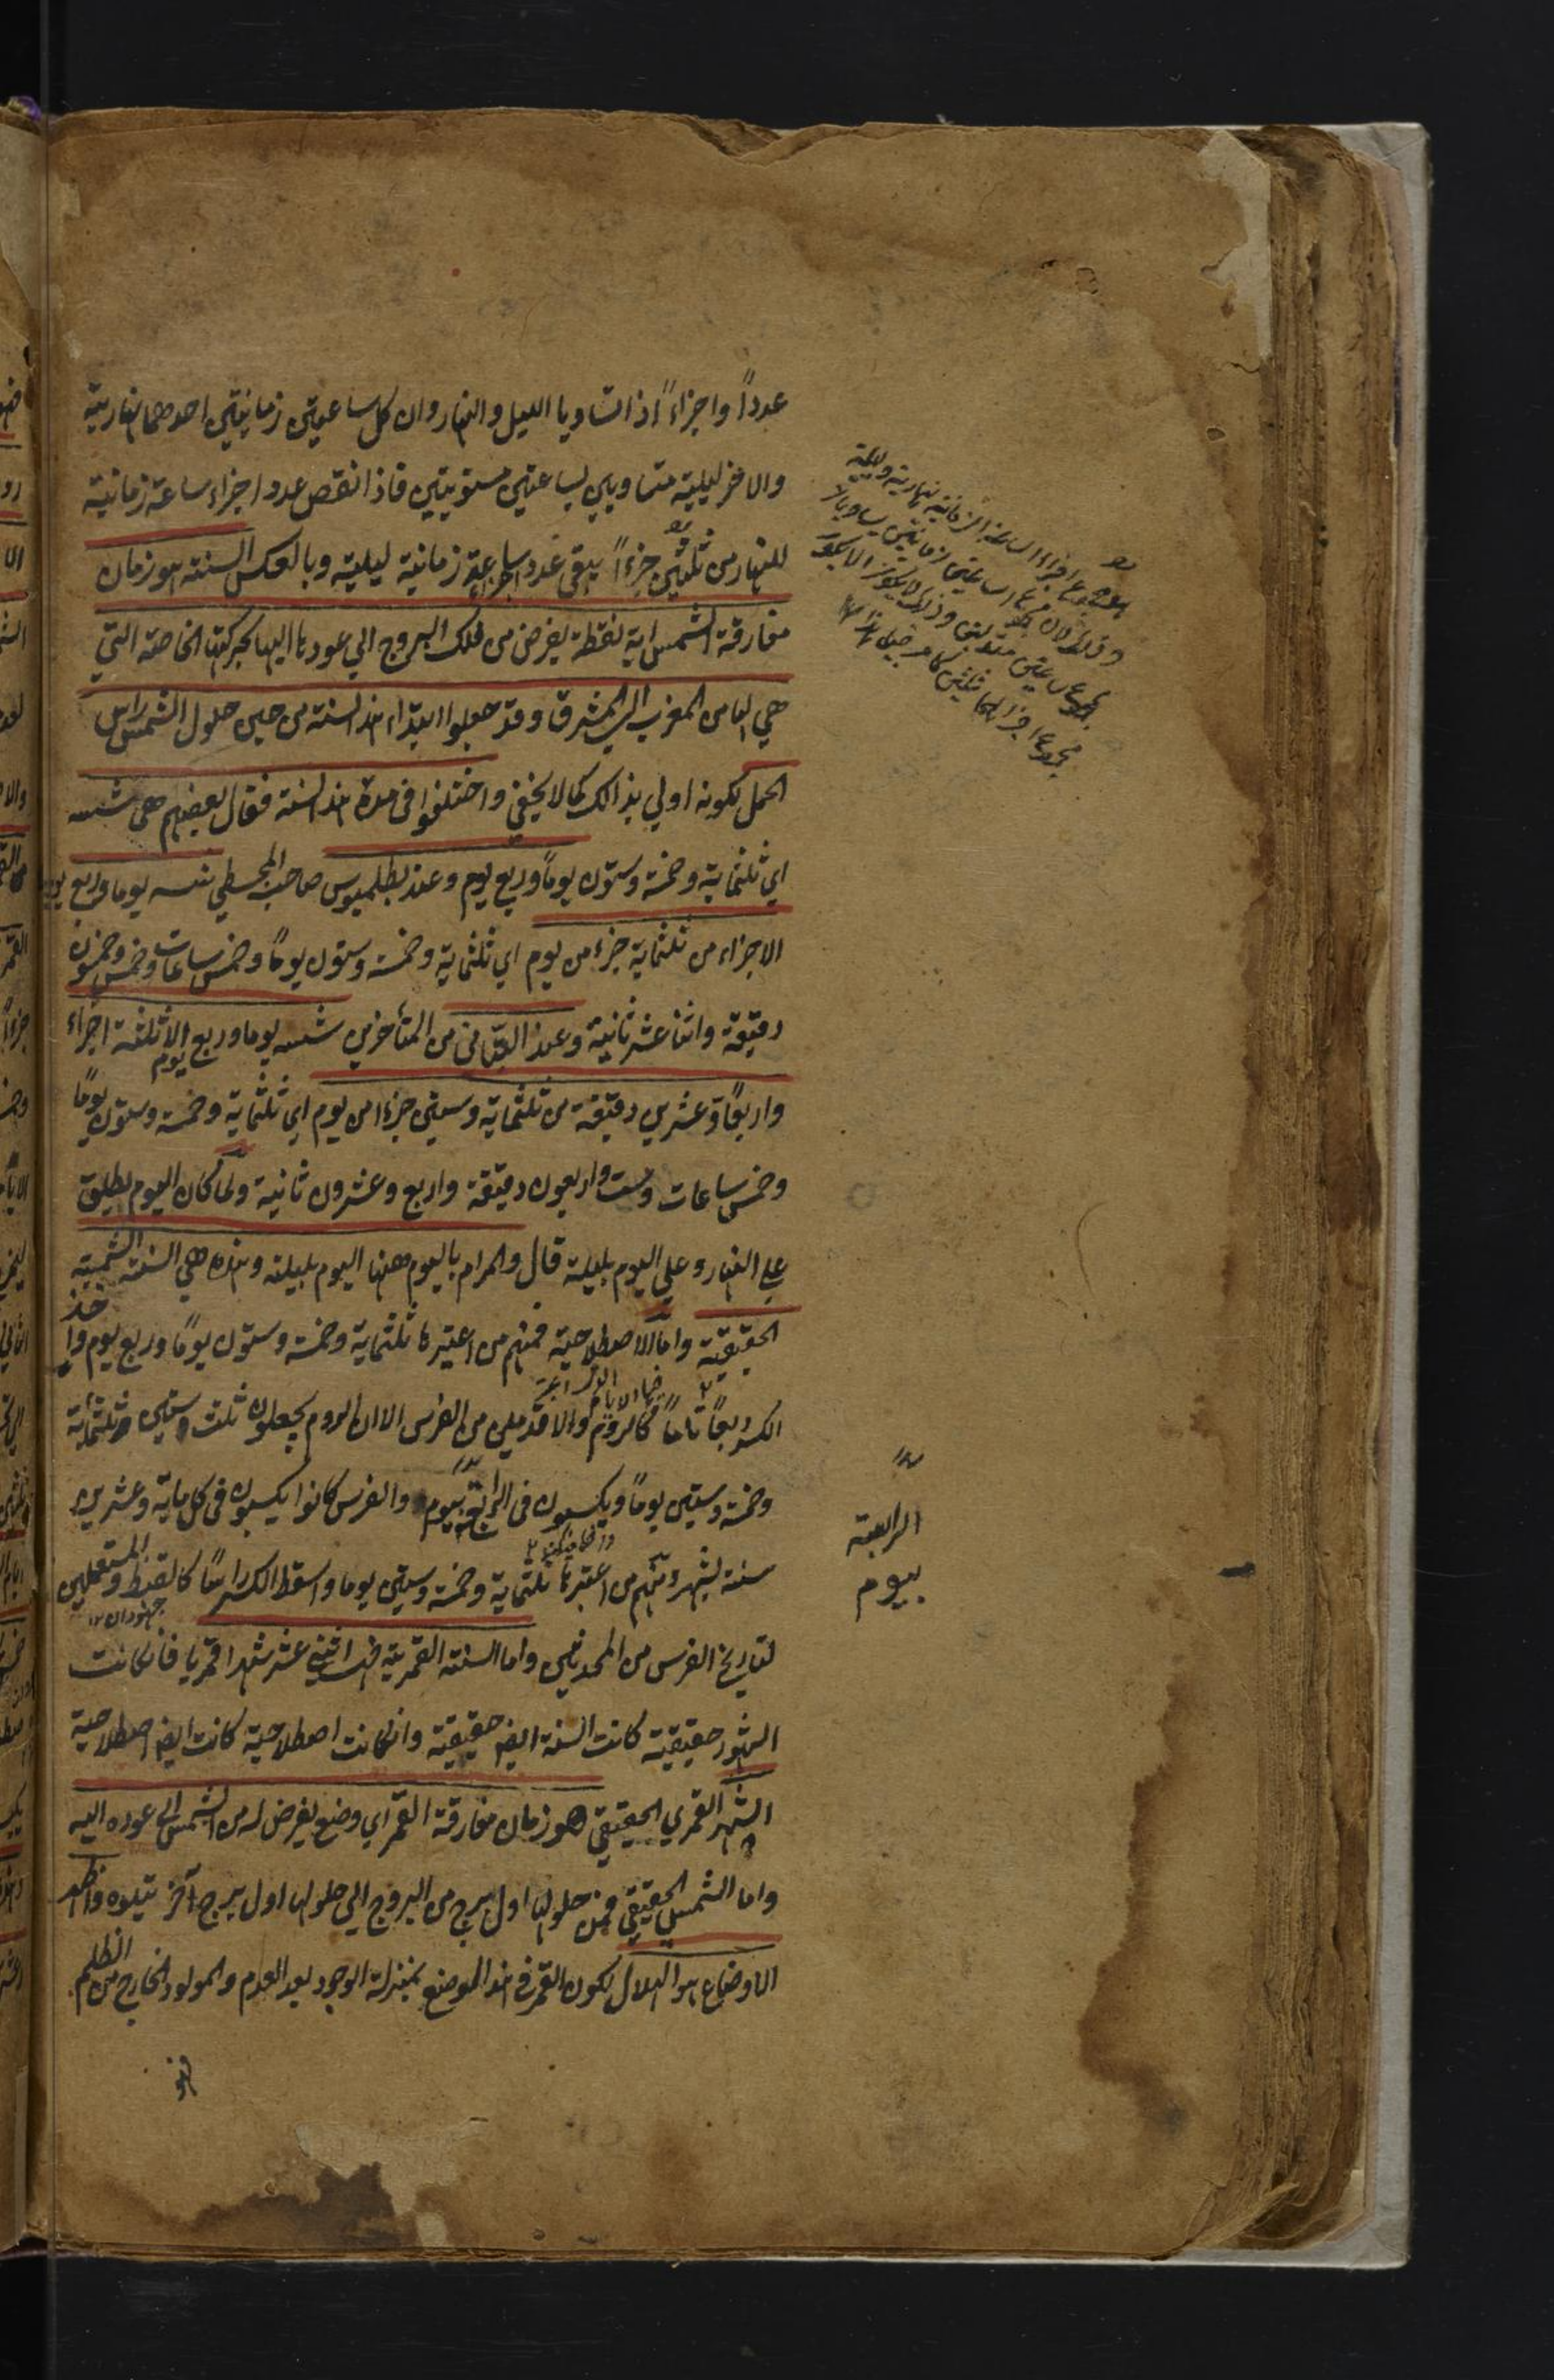 عدداً واجزاءً اذا تساويا الليل والنهار وان كل ساعتين زمانيتين احدهما نهارية
والاخر ليلية متساويين لساعتين مستويتين فاذا نقص عدد اجزاء ساعة زمانية
للنهار من ثلثين جزءاً يبقى عدد اجزاء ساعة زمانية ليلية وبالعكس السنة هو زمان
مفارقة الشمس اية نقطة يفرض من فلك البروج الي عودها اليها بحركتها الخاصة التي
هي لها من المغرب الي المشرق وقد جعلوا ابتداء هذه السنة من حين حلول الشمس راس
الحمل لكونه اولي بذالك كما لا يخفي واختلفوا في مدة هذه السنة فقال بعضهم هي شسه
اي ثلثماية وخمسة وستون يوماً وربع يوم وعند بطلميوس صاحب المجسطي شسه يوما وربع يوم
الاجزاء من ثلثماية جزء من يوم اي ثلثماية وخمسة وستون يوماً وخمس ساعات وخمس وخمسون
دقيقة واثنا عشر ثانية وعند البتاني من المتأخرين شسه يوما وربع يوم الا ثلثة اجزاء
واربعاً وعشرين دقيقة من ثلثماية وستين جزءا من يوم اي ثلثماية وخمسة وستون يوماً
وخمس ساعات وست واربعون دقيقة واربع وعشرون ثانية ولما كان اليوم يطلق
علي النهار وعلي اليوم بليلة قال والمرام باليوم ههنا اليوم بليلته وهذه هي السنة الشمسية
الحقيقية واما الاصطلاحية فمنهم من اعتبرها ثلثماية وخمسة وستون يوماً وربع يوم واخذ
الكسر ربعاً تاماً كالروم والاقدمين من الفرس الا ان الروم يجعلون ثلث سنين ثلثمائة
وخمسة وستين يوماً ويكبسون في الرابعة بيوم والفرس كانوا يكبسون في كل ماية وعشرين
سنة بشهر ومنهم من اعتبرها ثلثماية وخمسة وستين يوما واسقط الكسر راسًا كالقبط والمستعملين
لتاريخ الفرس من المحدثين واما السنة القمرية فهي اثني عشر شهرا قمريا فان كانت
الشهور حقيقية كانت السنة ايضا حقيقية وان كانت اصطلاحية كانت ايضا اصطلاحية
الشهر القمري الحقيقي هو زمان مفارقة القمر اي وضع يفرض له من الشمس الي عوده اليه
واما الشمسي الحقيقي فمن حلولها اول برج من البروج الي حلولها اول برج آخر يتلوه واظهر
الاوضاع هو الهلال لكون القمر في هذا الموضع بمنزلة الوجود بعد العدم والمولود الخارج من الظلم
الرابعة
بيوم